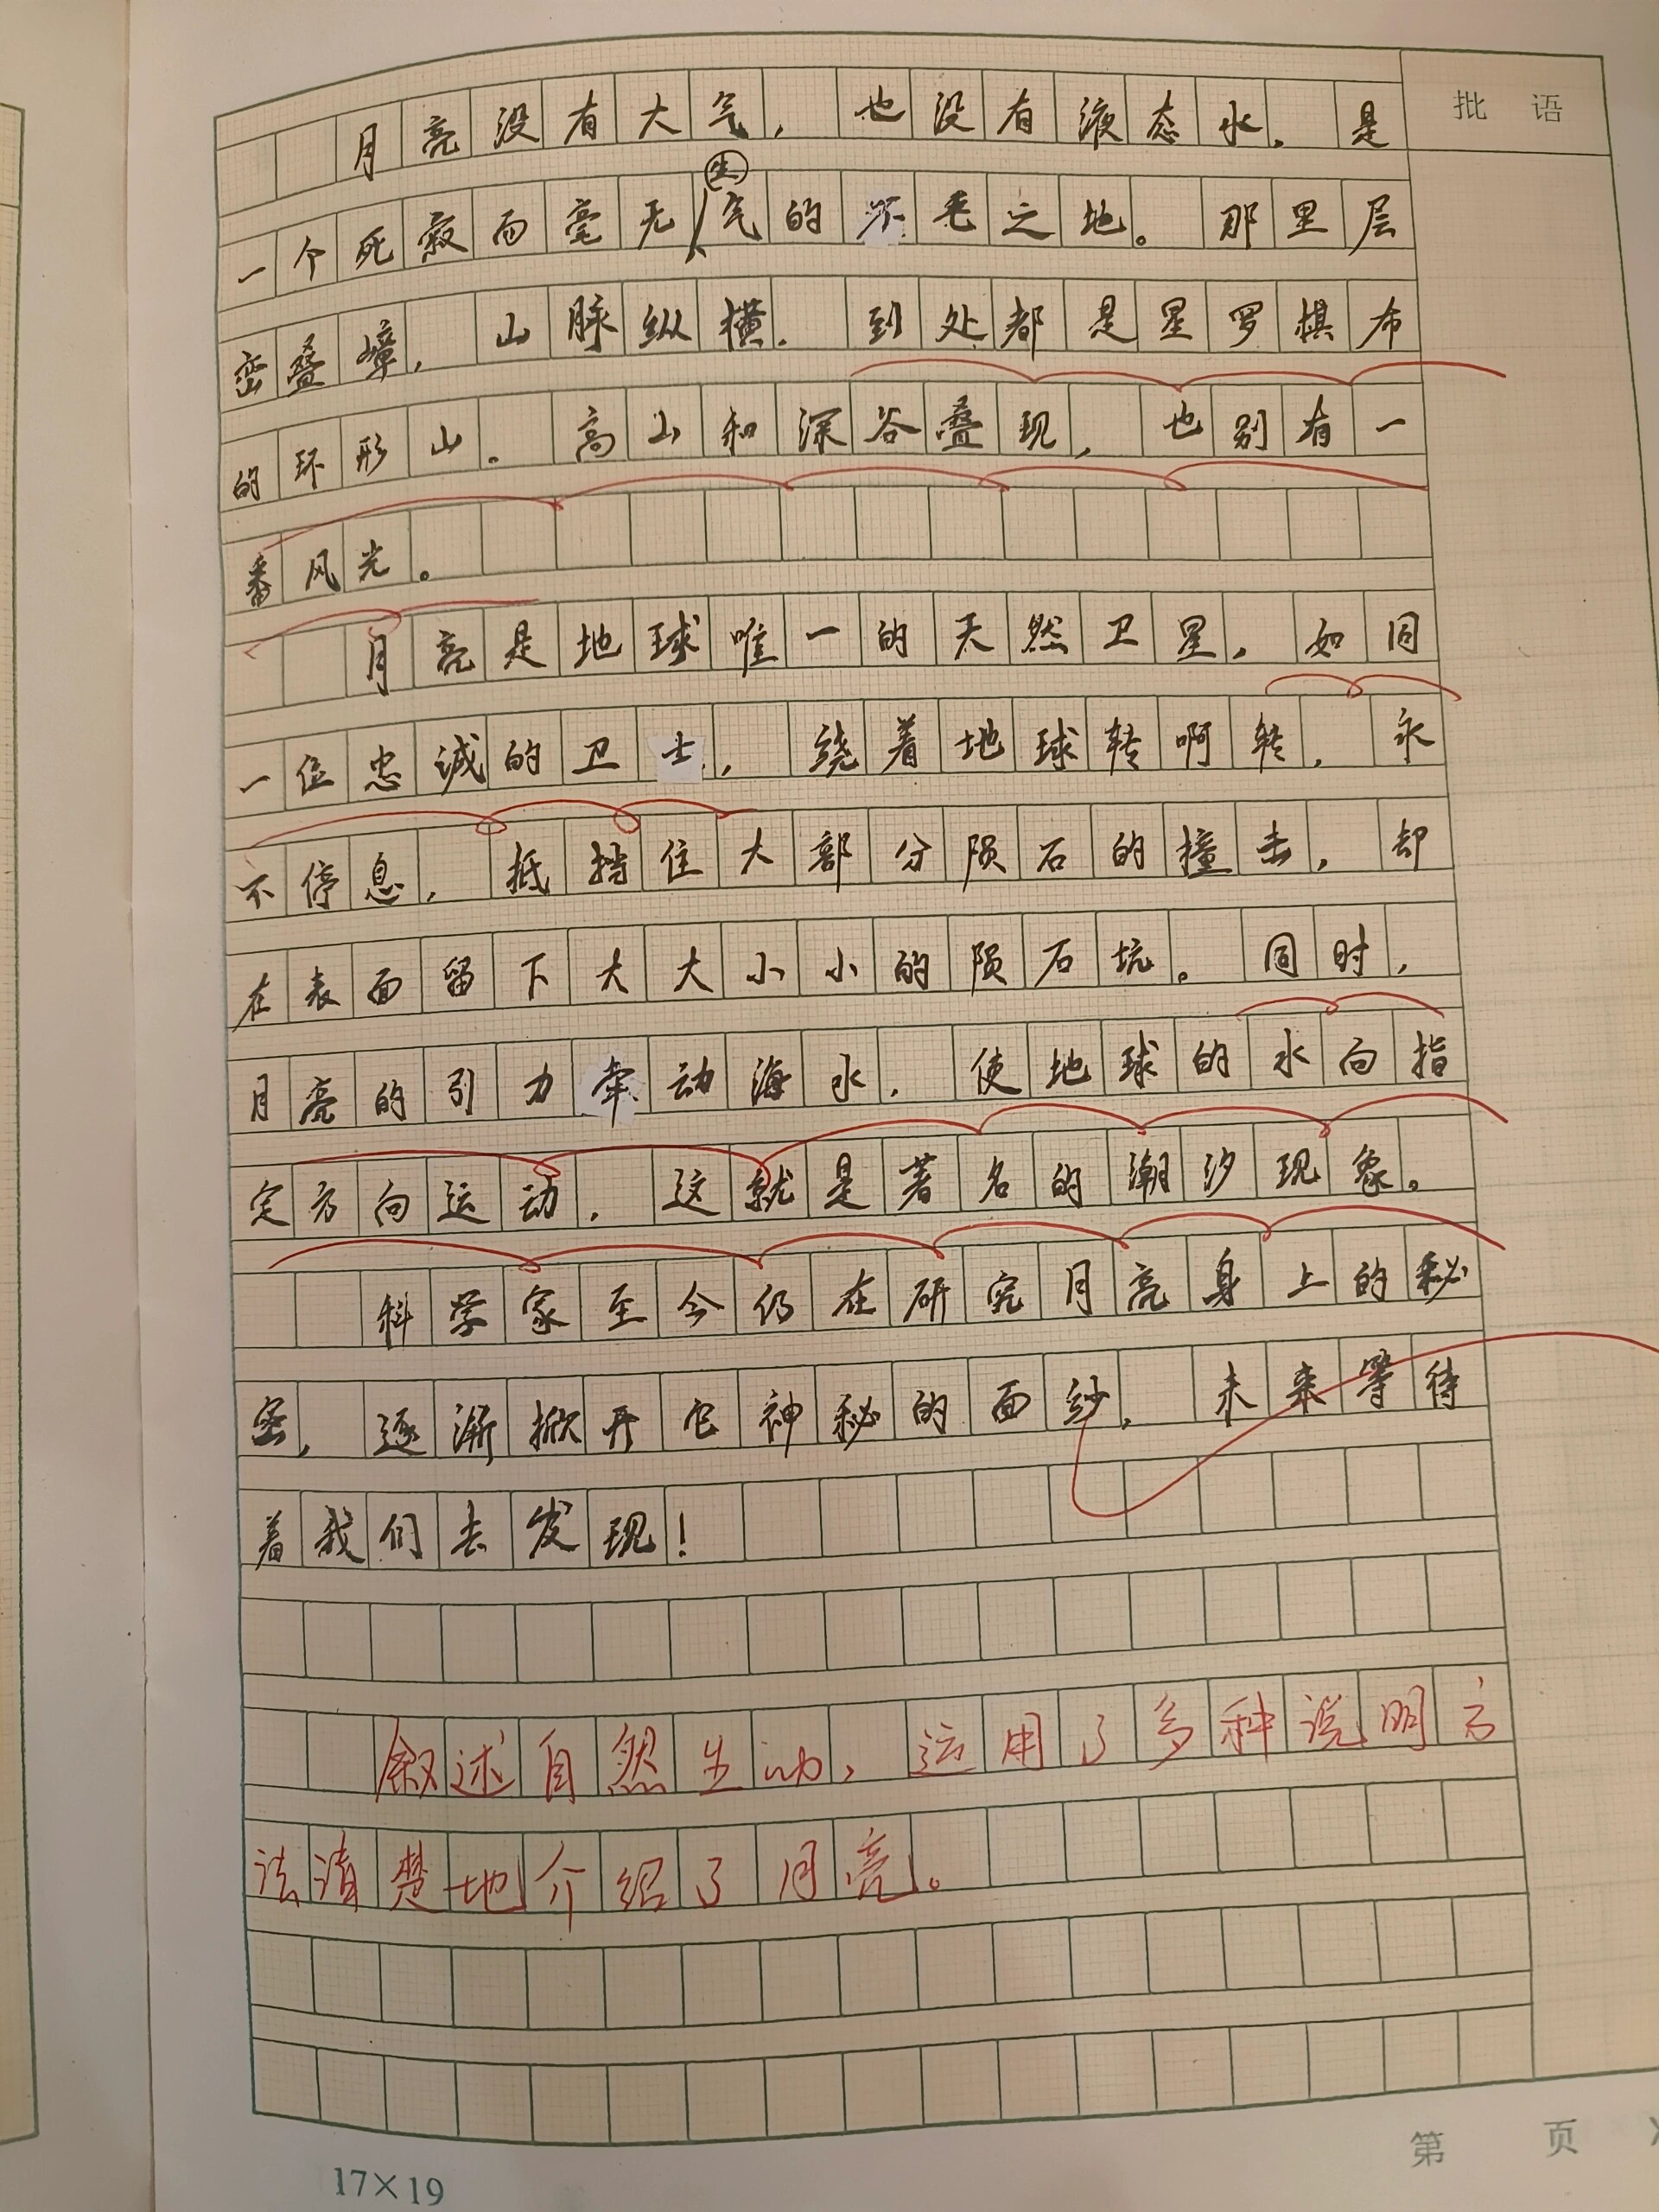 批 语
月亮没有大气，也没有液态水，是
一个死寂而毫无生气的不毛之地。那里层
峦叠嶂，山脉纵横，到处都是星罗棋布
的环形山。高山和深谷叠现，也别有一
番风光。
月亮是地球唯一的天然卫星，如同
一位忠诚的卫士，绕着地球转啊转，永
不停息，抵挡住大部分陨石的撞击，却
在表面留下大大小小的陨石坑。同时，
月亮的引力牵动海水，使地球的水向指
定方向运动，这就是著名的潮汐现象。
科学家至今仍在研究月亮身上的秘
密，逐渐掀开它神秘的面纱，未来等待
着我们去发现！
叙述自然生动，运用了多种说明方
法清楚地介绍了月亮。
17×19
第 页